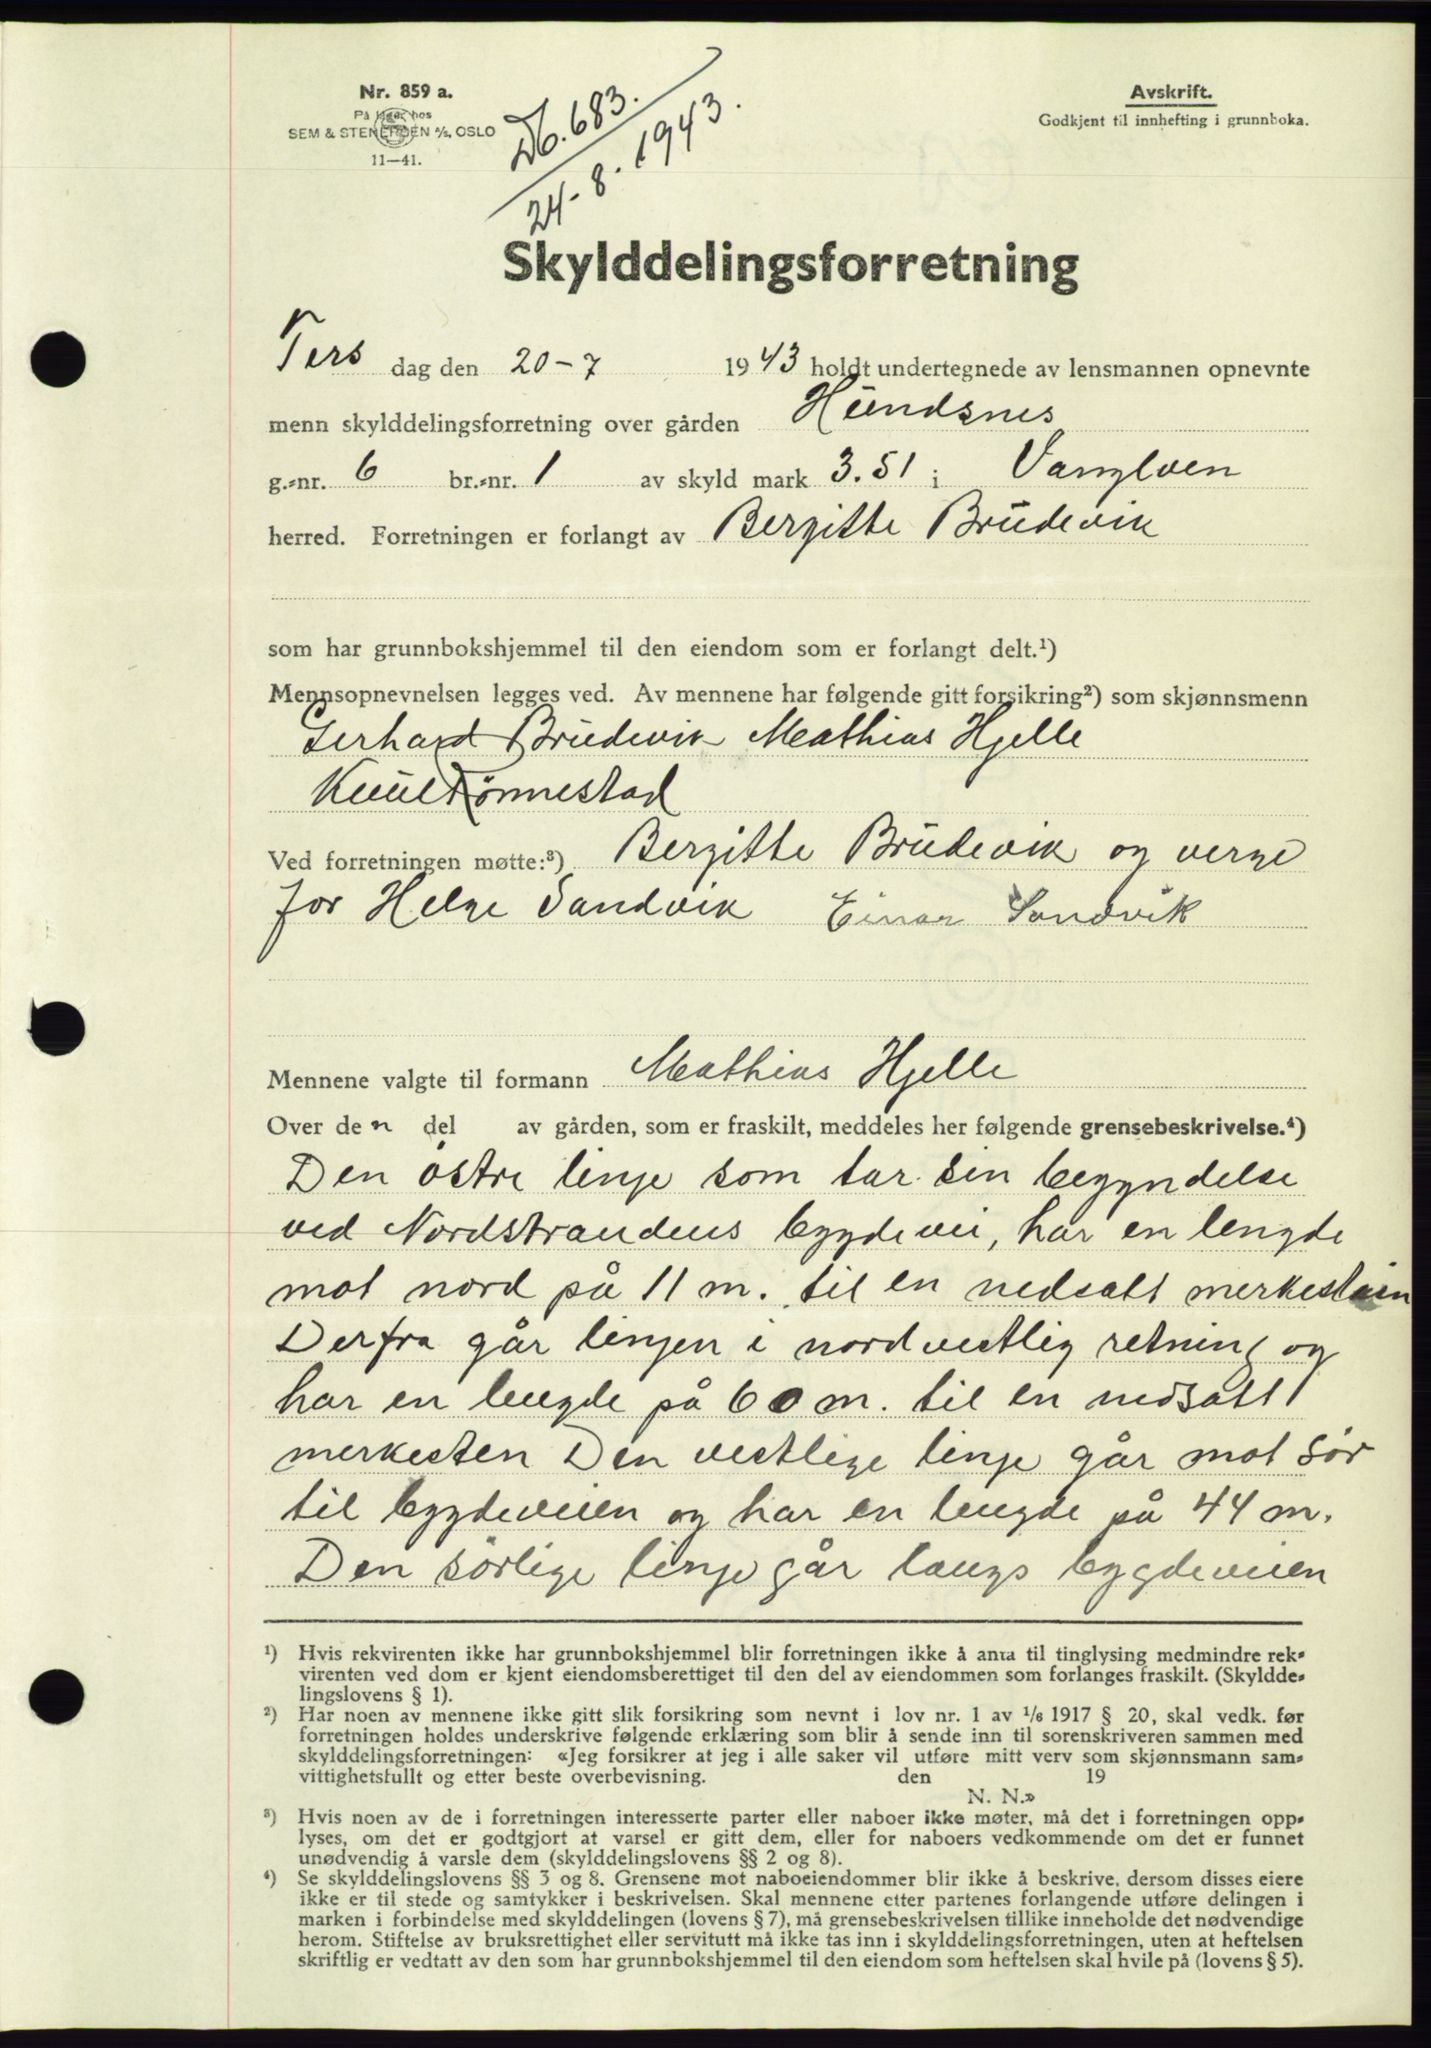 Nr. 859 a.
På lager hos
SEM & STENERSEN A/S, OSLO
11—41.
Db. 683.
24-8-1943.
Avskrift.
Godkjent til innhefting i grunnboka.
Skylddelingsforretning
Ters dag den 20-7 1943 holdt undertegnede av lensmannen opnevnte
menn skylddelingsforretning over gården Hundsnes
g.-nr. 6 br.-nr. 1 av skyld mark 3.51 i Vanylven
herred. Forretningen er forlangt av Bergitte Brudevik
som har grunnbokshjemmel til den eiendom som er forlangt delt.¹)
Mennsopnevnelsen legges ved. Av mennene har følgende gitt forsikring²) som skjønnsmenn
Gerhard Brudevik Mathias Hjelle
Knut Rönnestad
Ved forretningen møtte:³) Bergitte Brudevik og verge
for Helge Sandvik Einar Sandvik
Mennene valgte til formann Mathias Hjelle
Over den del av gården, som er fraskilt, meddeles her følgende grensebeskrivelse.⁴)
Den östre linje som tar sin begyndelse
ved Nordstrandens bygdevei, har en lengde
mot nord på 11 m. til en nedsatt merkestein
Derfra går linjen i nordvestlig retning og
har en lengde på 60 m. til en nedsatt
merkesten Den vestlige linje går mot sör
til bygdeveien og har en lengde på 44 m.
Den sörlige linje går langs bygdeveien
¹) Hvis rekvirenten ikke har grunnbokshjemmel blir forretningen ikke å anta til tinglysing medmindre rek-
virenten ved dom er kjent eiendomsberettiget til den del av eiendommen som forlanges fraskilt. (Skyldde-
lingslovens § 1).
²) Har noen av mennene ikke gitt slik forsikring som nevnt i lov nr. 1 av 1/6 1917 § 20, skal vedk. før
forretningen holdes underskrive følgende erklæring som blir å sende inn til sorenskriveren sammen med
skylddelingsforretningen: «Jeg forsikrer at jeg i alle saker vil utføre mitt verv som skjønnsmann sam-
vittighetsfullt og etter beste overbevisning. den 19
N. N.»
³) Hvis noen av de i forretningen interesserte parter eller naboer ikke møter, må det i forretningen opp-
lyses, om det er godtgjort at varsel er gitt dem, eller for naboers vedkommende om det er funnet
unødvendig å varsle dem (skylddelingslovens §§ 2 og 8).
⁴) Se skylddelingslovens §§ 3 og 8. Grensene mot naboeiendommer blir ikke å beskrive, dersom disses eiere
ikke er til stede og samtykker i beskrivelsen. Skal mennene etter partenes forlangende utføre delingen i
marken i forbindelse med skylddelingen (lovens § 7), må grensebeskrivelsen tillike inneholde det nødvendige
herom. Stiftelse av bruksrettighet eller servitutt må ikke tas inn i skylddelingsforretningen, uten at heftelsen
skriftlig er vedtatt av den som har grunnbokshjemmel til den eiendom som heftelsen skal hvile på (lovens § 5).